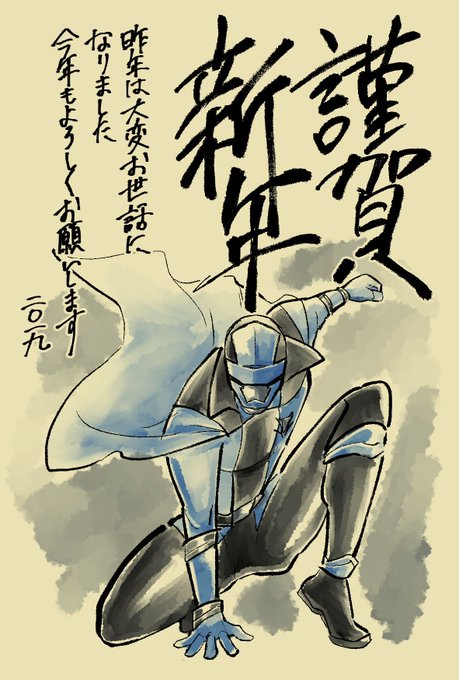 謹賀
新年
昨年は大変お世話に
なりました
今年もよろしくお願いします
二〇一九